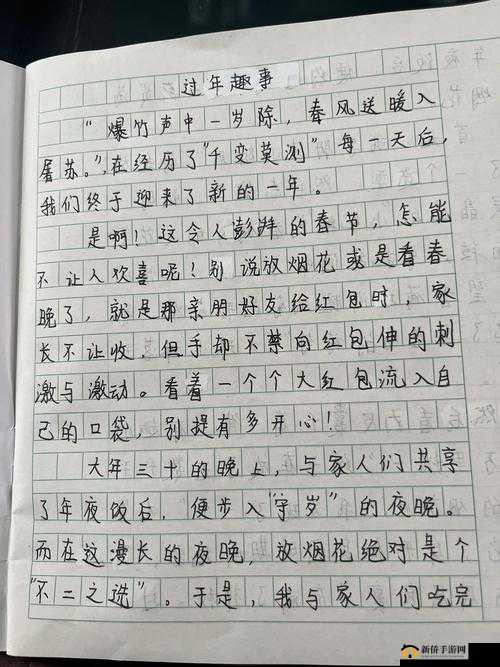 过年趣事
“爆竹声中一岁除，春风送暖入
屠苏。”,在经历了“千变莫测”每一天后，
我们终于迎来了新的一年。
是啊！这令人澎湃的春节，怎能
不让人欢喜呢！别说放烟花或是看春
晚了，就是那亲朋好友给红包时，家
长不让收，但手却不禁向红包伸的刺
激与激动。看着一个个大红包流入自
己的口袋，别提有多开心！
大年三十的晚上，与家人们共享
了年夜饭后，便步入“守岁”的夜晚。
而在这漫长的夜晚，放烟花绝对是个
“不二之选”。于是，我与家人们吃完
新侨手游网